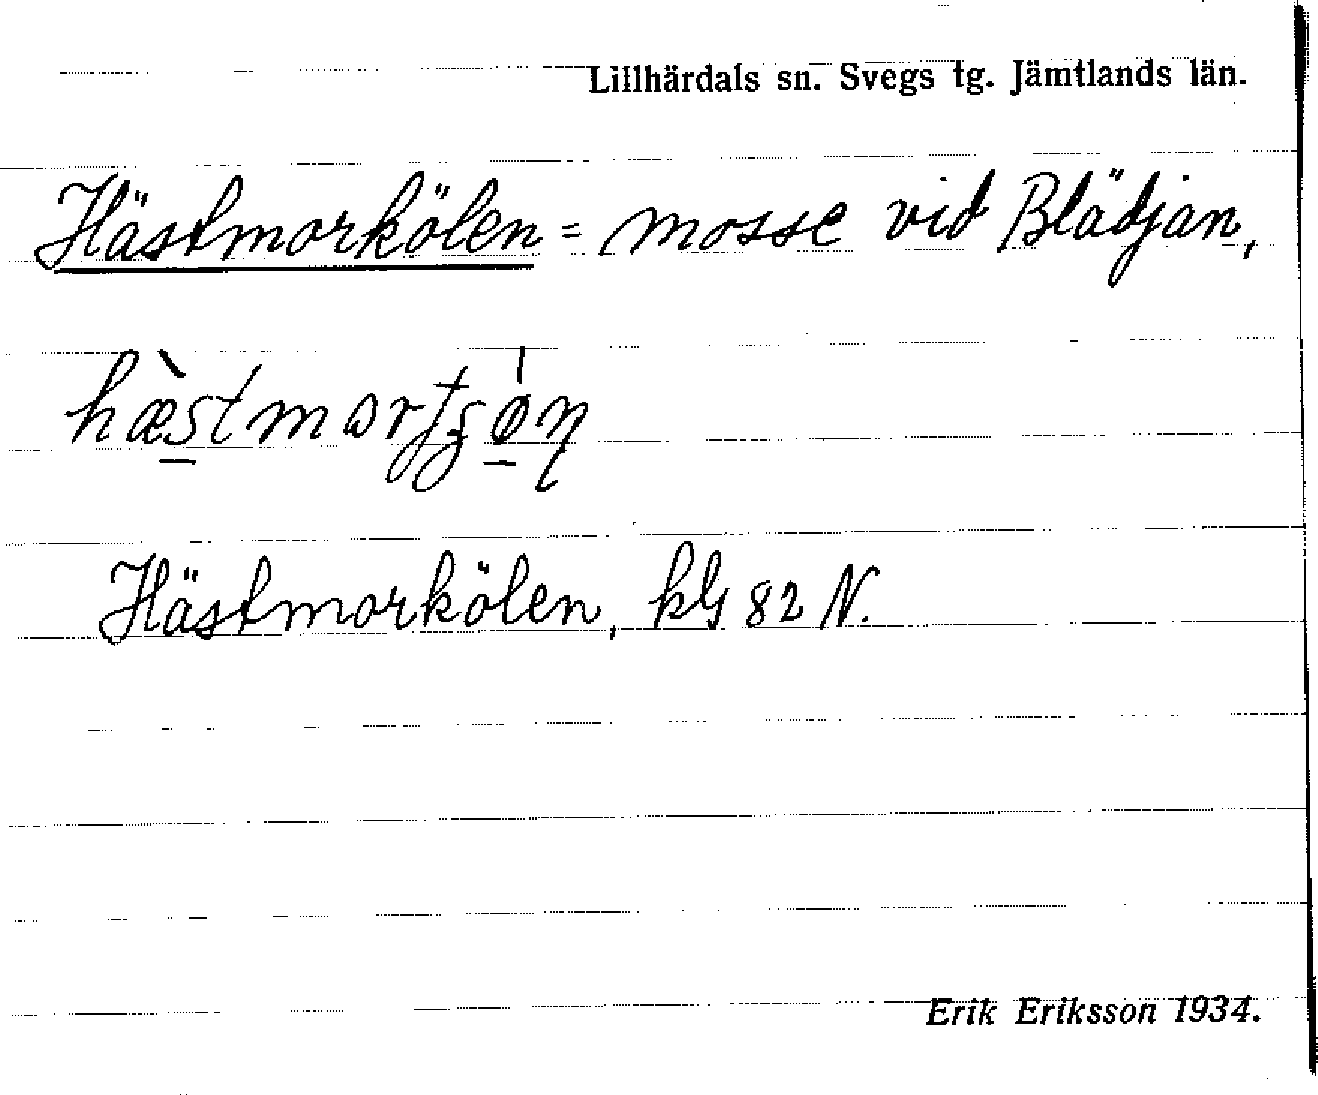 Lillhärdals sn. Svegs tg. Jämtlands län.
Hästmorkölen = mosse vid Blädjan,
Hästmorkölen, kbl 82 N.
Erik Eriksson 1934.